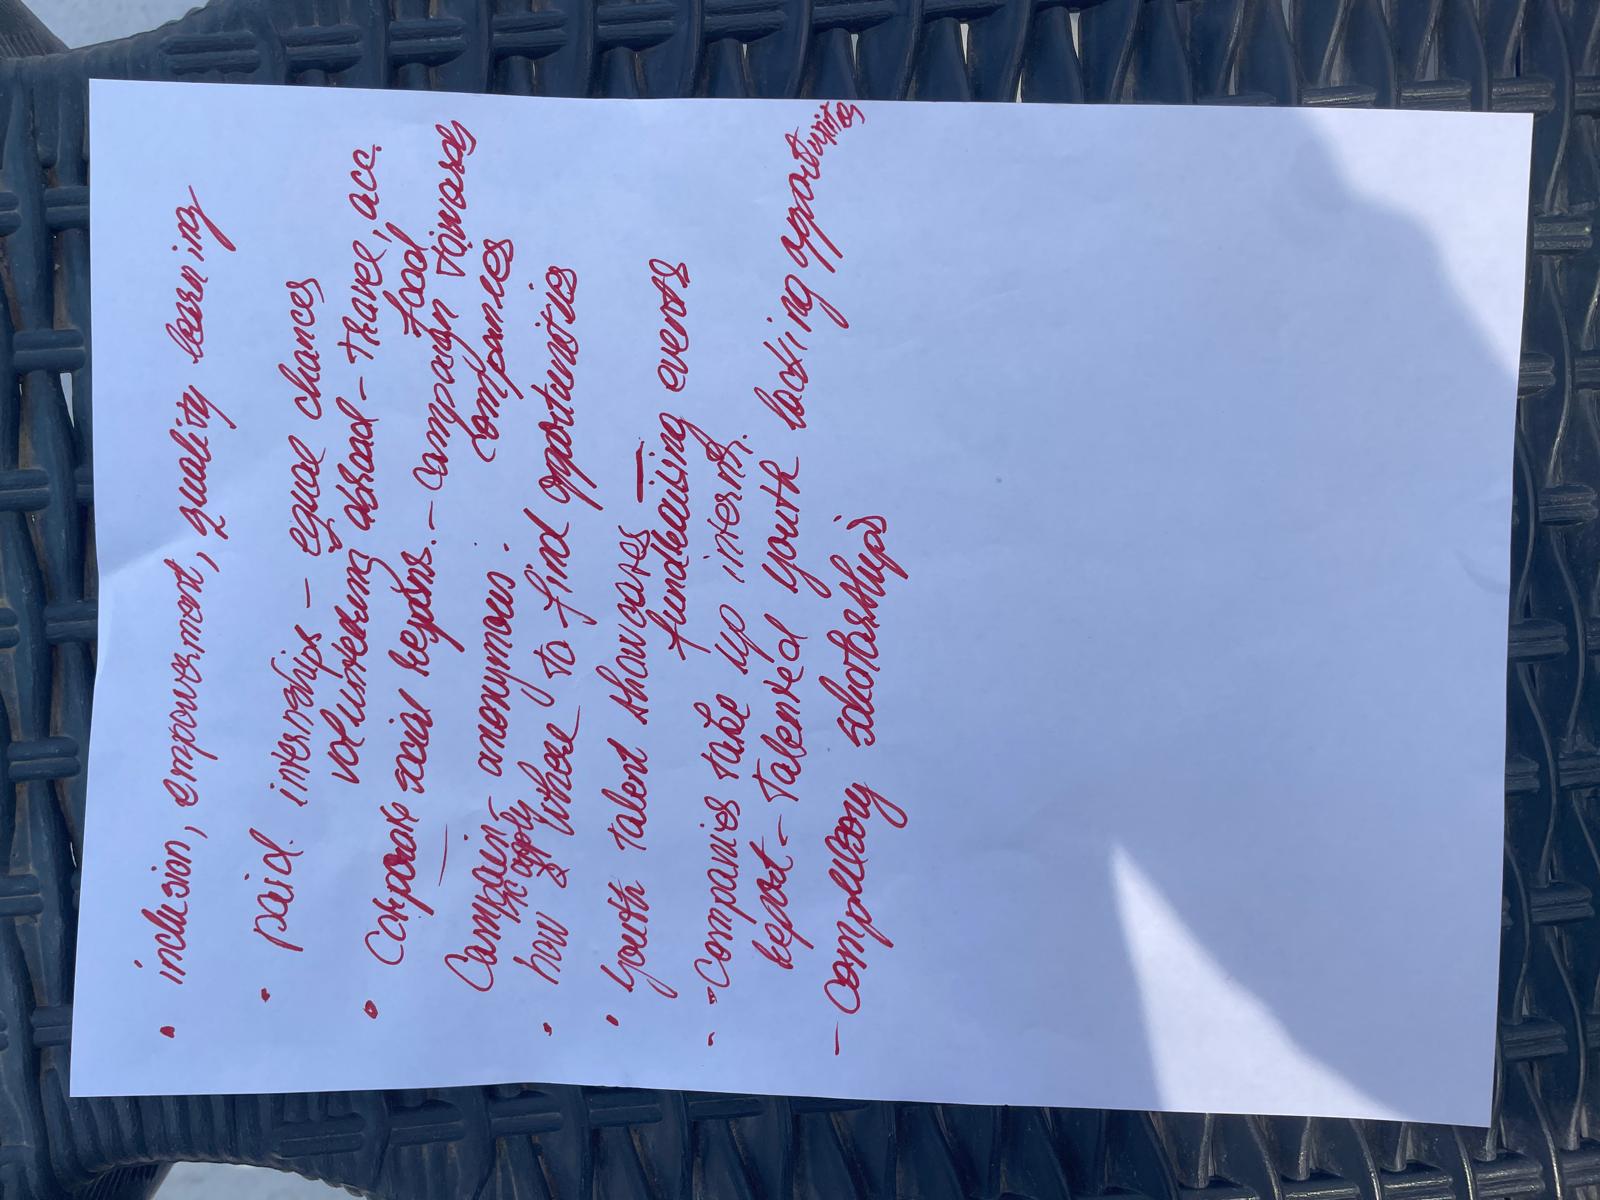 • inclusion, empowerment, quality learning
• paid internships – equal chances
volunteering abroad – travel, acc.
food
• corporate social respons. – campaign towards
companies
– Campaign – anonymous.
to apply
• how & where to find opportunities
• youth talent showcases –
fundraising events
- Companies take up interns.
report – talented youth lacking opportunities
– compulsory scholarships